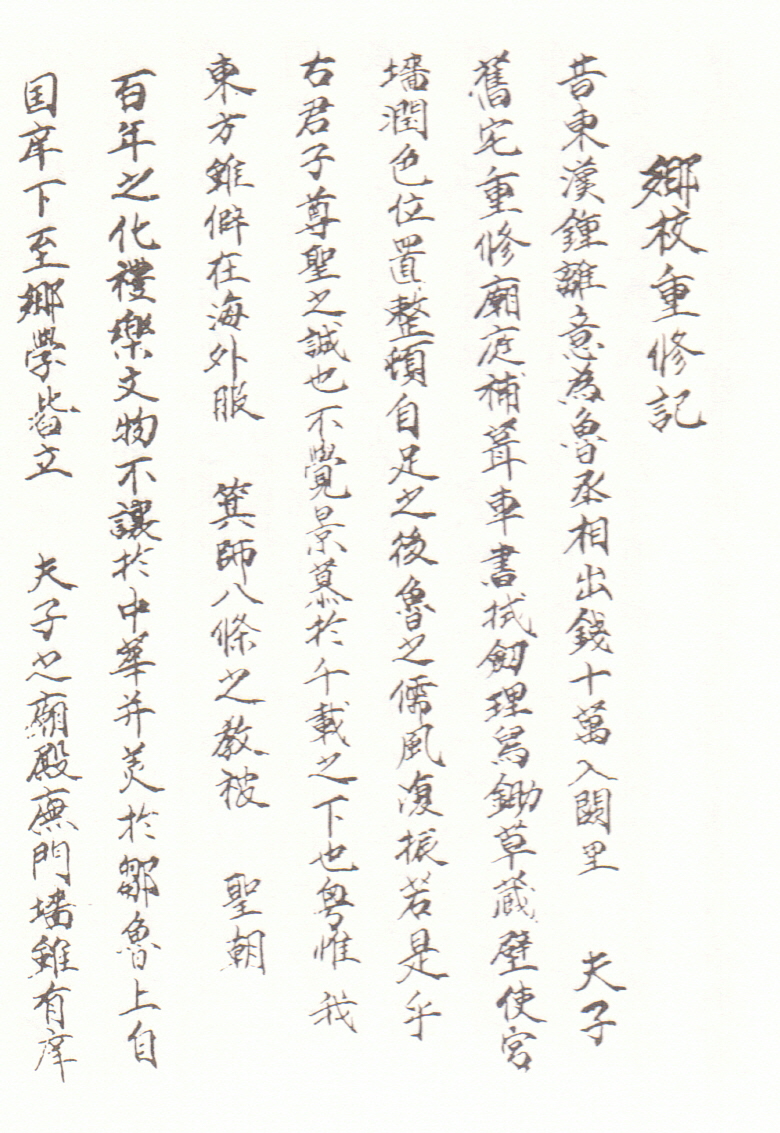 鄕校重修記
昔東漢鍾離意為魯丞相出錢十萬入闕里 夫子
舊宅重修廟庭補葺車書拭劒理舃鋤草蔵壁使宮
墻潤色位置整頓自足之後魯之儒風復振若是乎
古君子尊聖之誠也不覺景慕於千載之下也粤惟 我
東方雖僻在海外服 箕師八條之敎被 聖朝
百年之化禮樂文物不讓於中華并美於鄒魯上自
国庠下至鄕學皆立 夫子之廟殿廡門墻雖有庠